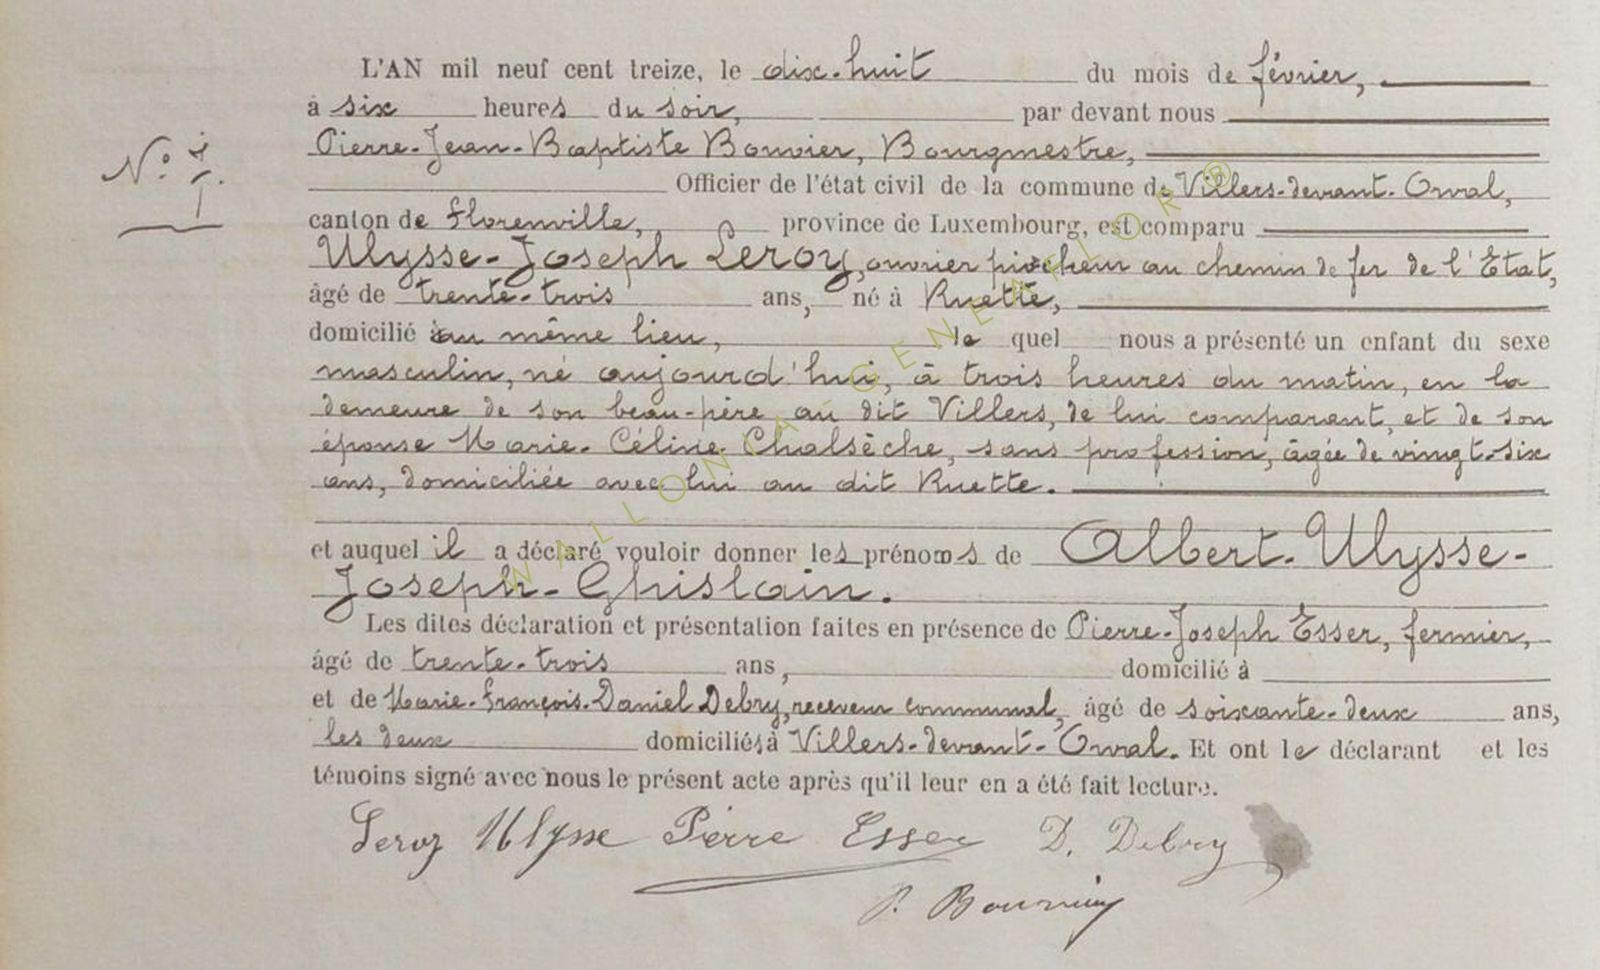 L'AN mil neuf cent treize, le dix-huit du mois de février,
à six heures du soir, par devant nous
Pierre-Jean-Baptiste Bouvier, Bourgmestre,
N°
Officier de l'état civil de la commune de Villers-devant-Orval,
canton de Florenville, province de Luxembourg, est comparu
Ulysse-Joseph Leroy, ouvrier piocheur au chemin de fer de l'Etat,
âgé de trente-trois ans, né à Ruette,
domicilié au même lieu, le quel nous a présenté un enfant du sexe
masculin, né aujourd'hui, à trois heures du matin, en la
demeure de son beau-père au dit Villers, de lui comparant, et de son
épouse Marie-Céline Chalsèche, sans profession, âgée de vingt-six
ans, domiciliée avec lui au dit Ruette.
et auquel il a déclaré vouloir donner les prénoms de Albert-Ulysse-
Joseph-Ghislain.
Les dites déclaration et présentation faites en présence de Pierre-Joseph Esser, fermier,
âgé de trente-trois ans, domicilié à
et de Marie-François-Daniel Debry, receveur communal, âgé de soixante-deux ans,
les deux domiciliés à Villers-devant-Orval. Et ont le déclarant et les
témoins signé avec nous le présent acte après qu'il leur en a été fait lecture.
Leroy Ulysse Pierre Esser D. Debry
P. Bouvier
WALLONIA-GENEALOR®